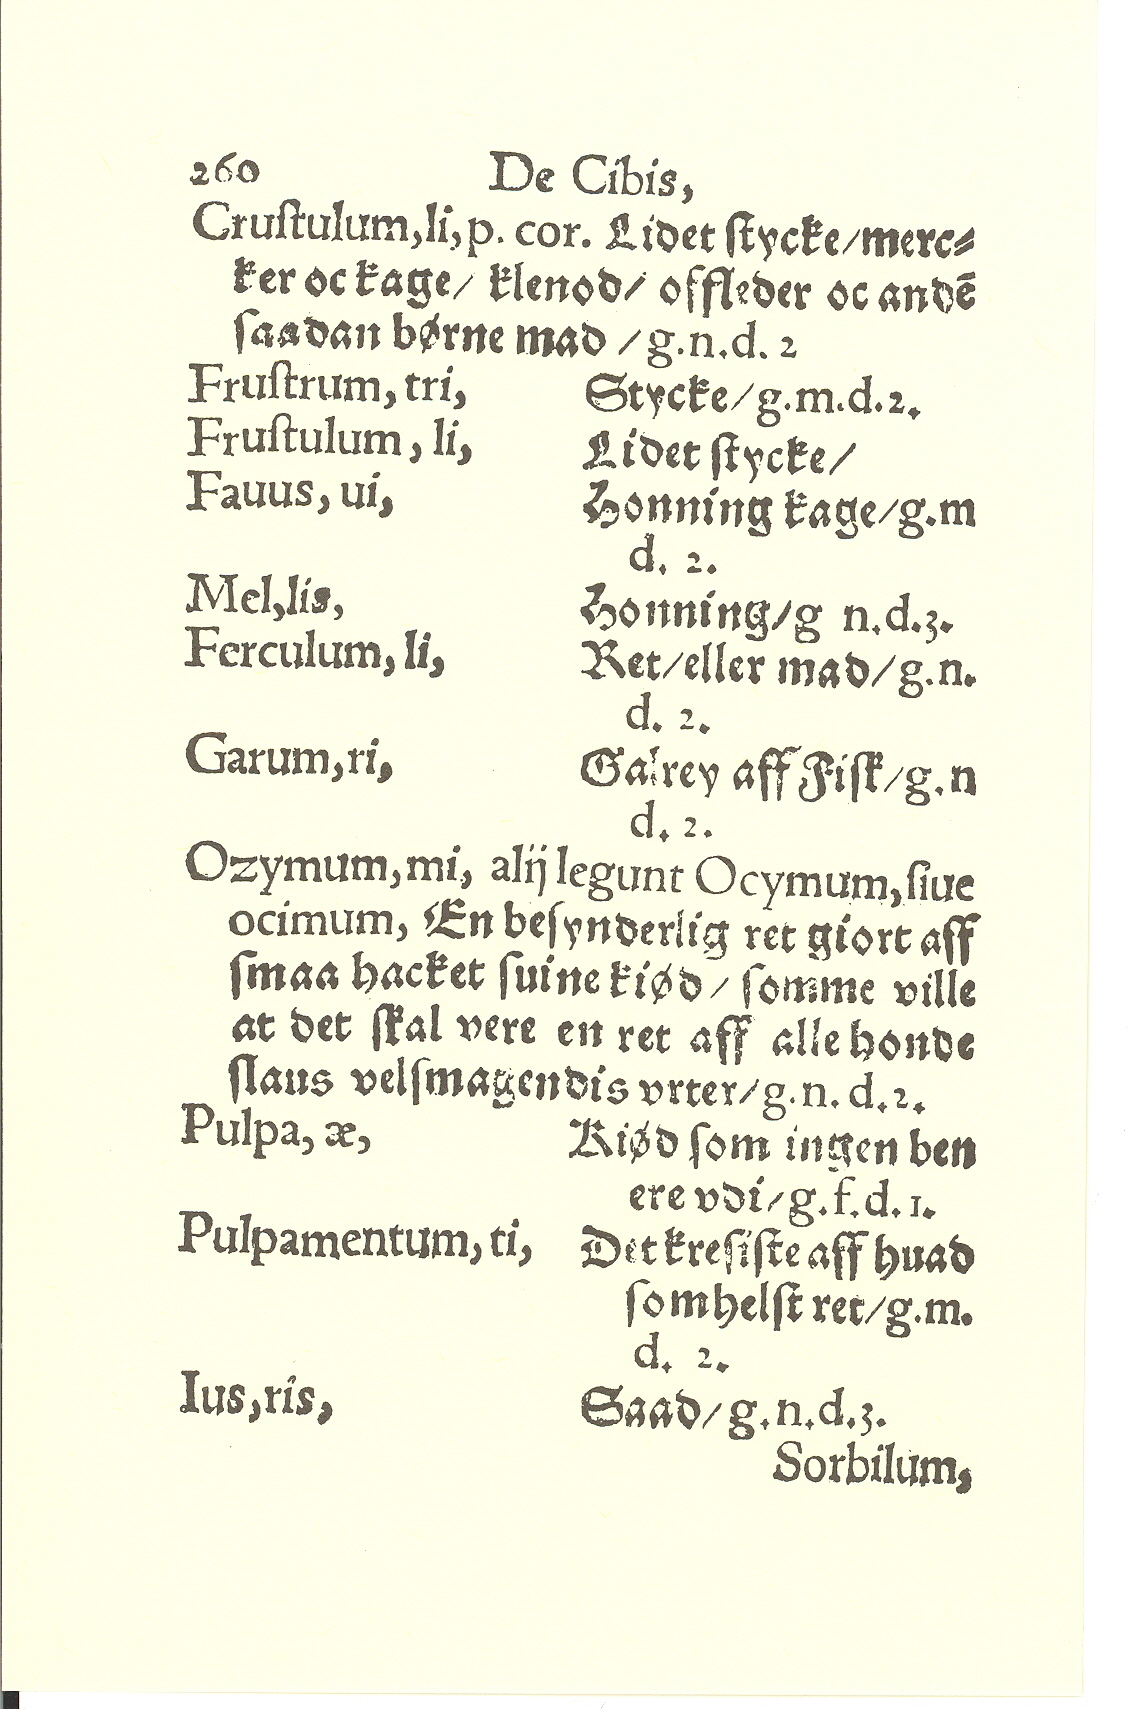 260 De Cibis,
Cruſtulum,li,p. cor. Lidet ſtycke/merc⸗
ker oc kage/ klenod/ offleder oc andē
ſaadan børne mad /g.n.d. 2
Fruſtrum, tri, Stycke/g.m.d.2.
Fruſtulum, li, Lidet ſtycke/
Fauus, ui, Honning kage/g.m
d. 2.
Mel,lis, Honning/g n.d.3.
Ferculum, li, Ret/eller mad/g.n.
d. 2.
Garum,ri, Galrey aff Fiſk/g.n
d. 2.
Ozymum,mi, alij legunt Ocymum,ſiue
ocimum, En beſynderlig ret giort aff
ſmaa hacket ſuine kiød/ ſomme ville
at det ſkal vere en ret aff alle honde
ſlaus velſmagendis vrter/g.n.d.2.
Pulpa, æ, Kiød ſom ingen ben
ere vdi/g.f.d.1.
Pulpamentum, ti, Det kreſiſte aff huad
ſomhelſt ret/g.m.
d. 2.
Ius,ris, Saad/g.n.d.3.
Sorbilum,